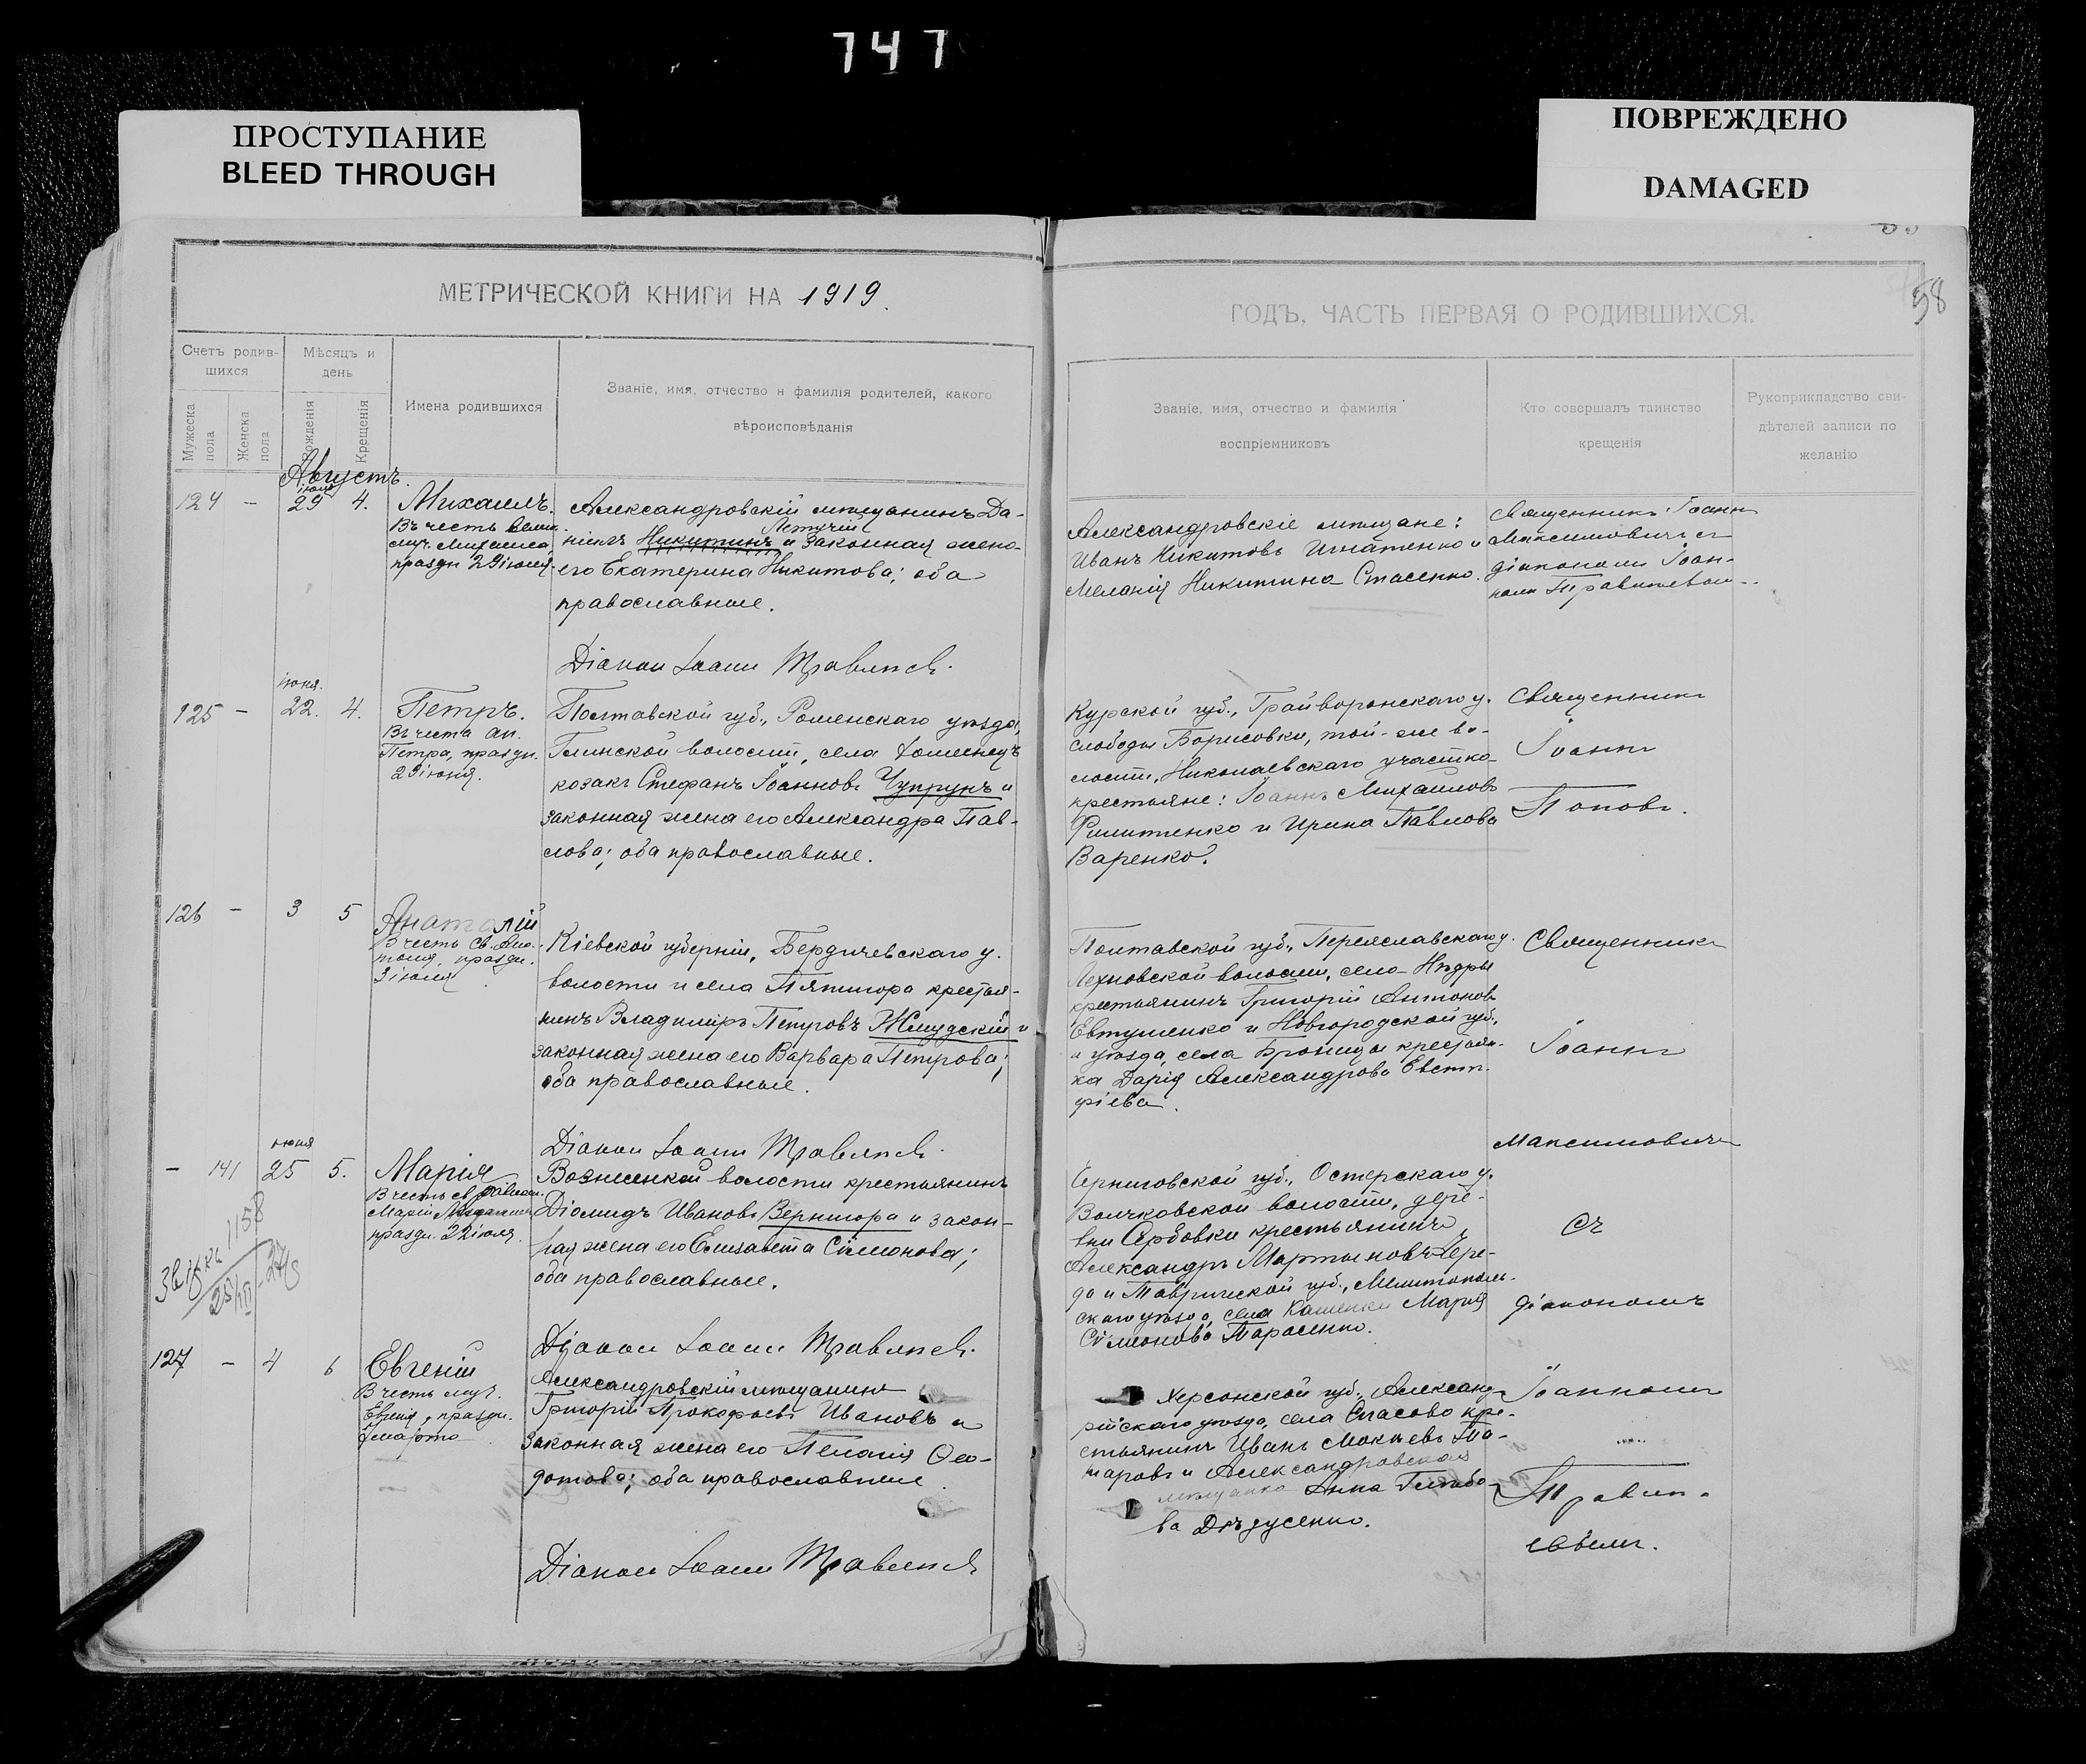 747
ПРОСТУПАНИЕ
BLEED THROUGH
ПОВРЕЖДЕНО
DAMAGED
58
МЕТРИЧЕСКОЙ КНИГИ НА 1919.
ГОДЪ, ЧАСТЬ ПЕРВАЯ О РОДИВШИХСЯ.
Счетъ родив-
шихся
Мѣсяцъ и
день
Мужеска пола
Женска пола
Рожденія
Крещенія
Имена родившихся
Званіе, имя, отчество и фамилія родителей, какого
вѣроисповѣданія
Званіе, имя, отчество и фамилія
воспріемниковъ
Кто совершалъ таинство
крещенія
Рукоприкладство сви-
дѣтелей записи по
желанію
Августъ.
124 - іюля 29 4.
Михаилъ.
Въ честь
муч. Михаила,
праздн. 29 іюля.
Александровскій мѣщанинъ Да-
Летучій
ніилъ Никитинъ и законная жена
его Екатерина Никитова; оба
православные.
Діакон Іоанн
Александровскіе мѣщане:
Иванъ Никитовъ Игнатенко и
Меланія Никитина Стасенко.
Священникъ Іоаннъ
Максимовичъ съ
діакономъ Іоан-
номъ
125 - іюня. 22. 4.
Петръ.
Въ честь ап.
Петра, праздн.
29 іюня.
Полтавской губ., Роменскаго уѣзда,
Глинской волости, села
козакъ Стефанъ Іоанновъ Чупрунъ и
законная жена его Александра Пав-
лова; оба православные.
Курской губ., Грайворонскаго у.
слободы Борисовки, той-же во-
лости, Николаевскаго участка
крестьяне: Іоаннъ Михаиловъ
и Ирина Павлова
Варенко.
Священникъ
Іоаннъ
Поповъ.
126 - 3 5
Анатолій
В честь св. Ана-
толія, праздн.
3 іюля
Кіевской губерніи, Бердичевскаго у.
волости и села Пятигора крестья-
нинъ Владиміръ Петровъ Жмудскій и
законная жена его Варвара Петрова;
оба православные.
Діакон Іоанн
Полтавской губ., Переяславскаго у.
волости, села
крестьянинъ Григорій Антоновъ
Евтушенко и Новгородской губ.,
и уѣзда, села Бронницы крестьян-
ка Дарія Александрова Евста-
фіева.
Священникъ
Іоаннъ
Максимовичъ
- 141 іюня 25 5.
Марія
В честь св. равноап.
Маріи Магдалины
праздн. 22 іюля.
1158
Вознесенской волости крестьянинъ
Діомидъ Ивановъ Вернигора и закон-
ная жена его Елизавета Симонова;
оба православные.
Діакон Іоанн
Черниговской губ., Остерскаго у.
волости, дере-
вни крестьянинъ
Александръ Мартыновъ Чере-
да и Таврической губ., Мелитополь-
скаго уѣзда, села Каменки Марія
Симонова Тарасенко.
Съ
діакономъ
127 - 4 6
Евгеній
В честь муч.
Евгенія, праздн.
7 марта
Александровскій мѣщанинъ
Григорій Прокофьевъ Ивановъ и
законная жена его Пелагія Ѳео-
дотова; оба православные
Діакон Іоанн
Херсонской губ., Александ-
рійскаго уѣзда, села Спасово кре-
стьянинъ Иванъ Мокіевъ
и Александровская
мѣщанка Анна Глѣбо-
ва
Іоанномъ